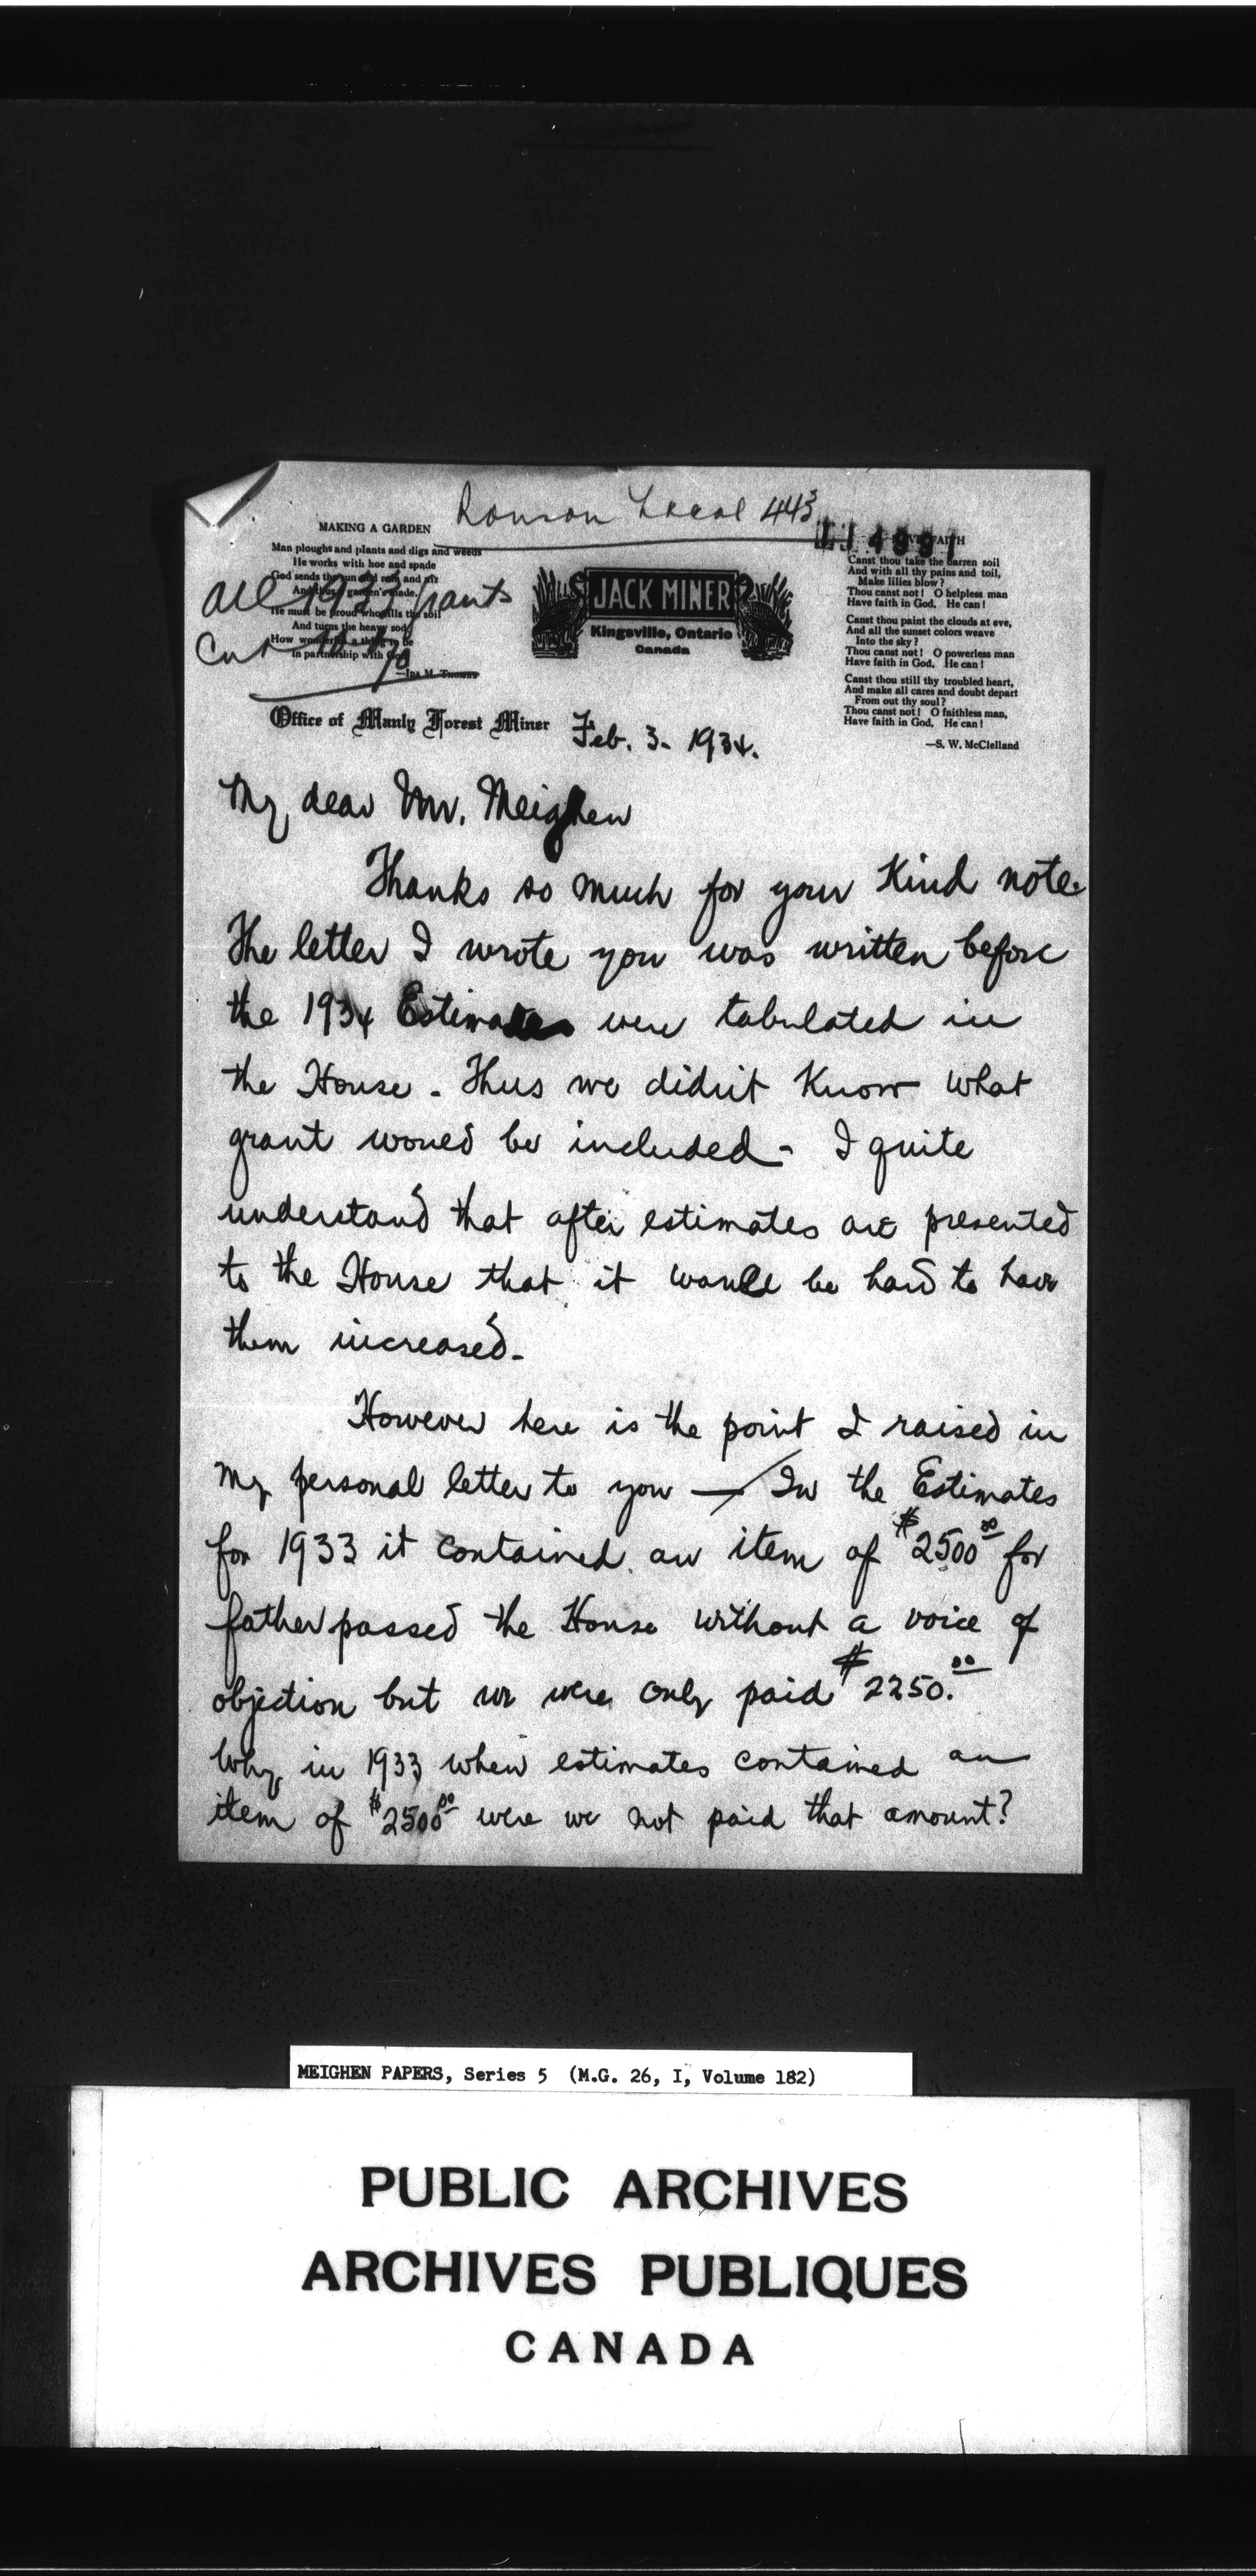 Ronson Local 443
114991
MAKING A GARDEN
Man ploughs and plants and digs and weeds
He works with hoe and spade
God sends the sun and rain and air
And thus a garden's made.
He must be proud who tills the soil
And turns the heavy sod
How wonderful a thing to be
In partnership with God
—Ida M. Thomas
All 1933 grants
Cut 10%
JACK MINER
Kingsville, Ontario
Canada
FAITH
Canst thou take the barren soil
And with all thy pains and toil,
Make lilies blow?
Thou canst not! O helpless man
Have faith in God. He can!
Canst thou paint the clouds at eve,
And all the sunset colors weave
Into the sky?
Thou canst not! O powerless man
Have faith in God. He can!
Canst thou still thy troubled heart,
And make all cares and doubt depart
From out thy soul?
Thou canst not! O faithless man,
Have faith in God. He can!
—S. W. McClelland
Office of Manly Forest Miner
Feb. 3. 1934.
My dear Mr. Meighen
Thanks so much for your kind note.
The letter I wrote you was written before
the 1934 Estimates were tabulated in
the House. Thus we didn't know what
grant would be included - I quite
understand that after estimates are presented
to the House that it would be hard to have
them increased.
However here is the point I raised in
my personal letter to you — In the Estimates
for 1933 it contained an item of $2500.00 for
father passed the House without a voice of
objection but we were only paid $2250.00
Why in 1933 when estimates contained an
item of $2500.00 were we not paid that amount?
MEIGHEN PAPERS, Series 5 (M.G. 26, I, Volume 182)
PUBLIC ARCHIVES
ARCHIVES PUBLIQUES
CANADA